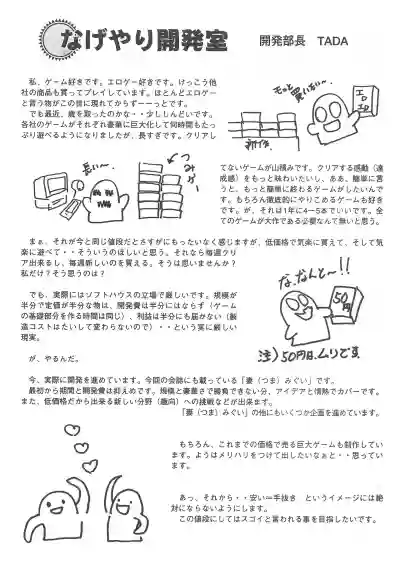 なげやり開発室
開発部長　TADA
私、ゲーム好きです。エロゲー好きです。けっこう他
社の商品も買ってプレイしています。ほとんどエロゲー
と言う物がこの世に現れてからずーーっとです。
でも最近、歳を取ったのかな・・少ししんどいです。
各社のゲームがそれぞれ豪華に巨大化して何時間もたっ
ぷり遊べるようになりましたが、長すぎです。クリアし
もっと買いない〜
エロ
新作
長い〜
つみゲー
てないゲームが山積みです。クリアする感動（達
成感）をもっと味わいたいし、ああ、簡単に言
うと、もっと簡単に終わるゲームがしたいんで
す。もちろん徹底的にやりこめるゲームも好き
です。が、それは1年に4〜5本でいいです。全
てのゲームが大作である必要なんて無いと思う。
まぁ、それが今と同じ値段だとさすがにもったいなく感じますが、低価格で気楽に買えて、そして気
楽に遊べて・・そういうのほしいと思う。それなら毎週クリ
ア出来るし、毎週新しいのを買える。そうは思いませんか？
私だけ？そう思うのは？
な、なんと〜!!
50円
注）50円は、ムリです
でも、実際にはソフトハウスの立場で厳しいです。規模が
半分で定価が半分な物は、開発費は半分にはならず（ゲーム
の基礎部分を作る時間は同じ）、利益は半分にも届かない（製
造コストはたいして変わらないので）・・という実に厳しい
現実。
が、やるんだ。
今、実際に開発を進めています。今回の会誌にも載っている「妻（つま）みぐい」です。
最初から期間と開発費は抑えめです。規模と豪華さで勝負できない分、アイデアと情熱でカバーです。
また、低価格だから出来る新しい分野（趣向）への挑戦などが出来ます。
「妻（つま）みぐい」の他にもいくつか企画を進めています。
もちろん、これまでの価格で売る巨大ゲームも制作してい
ます。ようはメリハリをつけて出したいなぁと・・思ってい
ます。
あっ、それから・・安い＝手抜き　というイメージには絶
対にならないようにします。
この値段にしてはスゴイと言われる事を目指したいです。